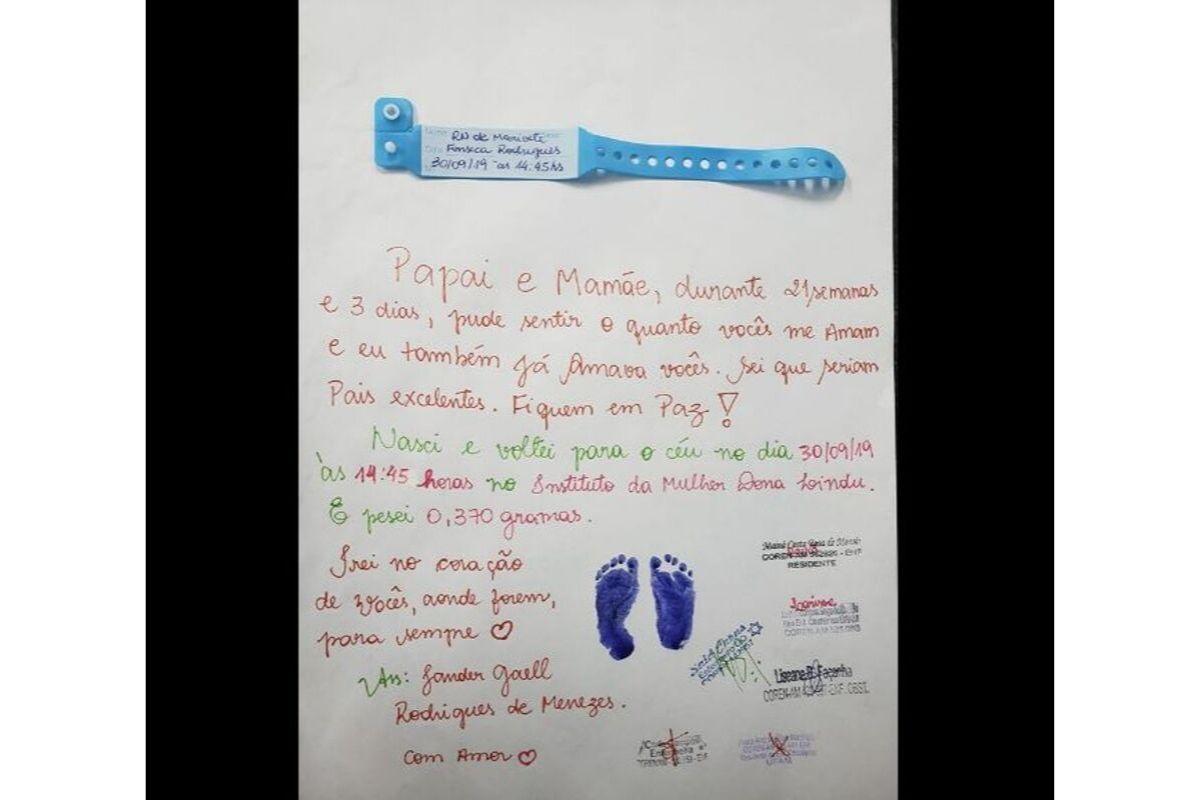 RN de Marivete
Fonseca Rodrigues
30/09/19 às 14:45hs
Papai e Mamãe, durante 21 semanas
e 3 dias, pude sentir o quanto vocês me Amam
e eu também já Amava vocês. Sei que seriam
Pais excelentes. Fiquem em Paz!
Nasci e voltei para o céu no dia 30/09/19
às 14:45 horas no Instituto da Mulher Dona Lindu.
E pesei 0,370 gramas.
Irei no coração
de vocês, aonde forem,
para sempre ♡
Ass: Sander Gaell
Rodrigues de Menezes.
Com Amor ♡
RESIDENTE
Liseane B. Façanha